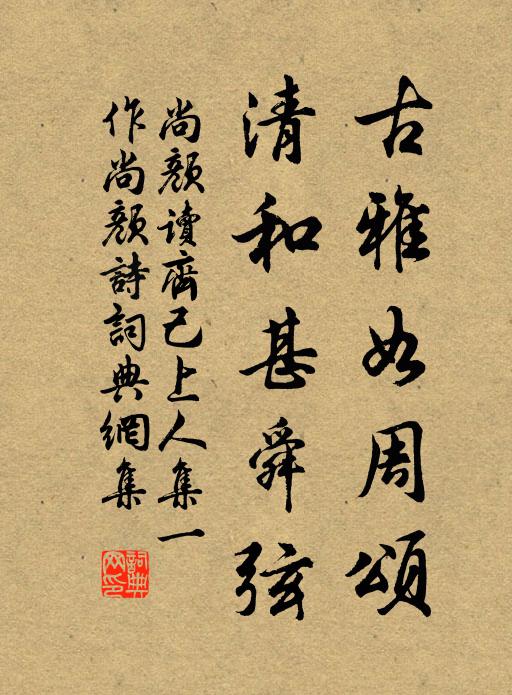 古雅如周頌
清和甚舜弦
尚顏讀齊己上人集一
作尚顏詩詞典網集
詞典網印